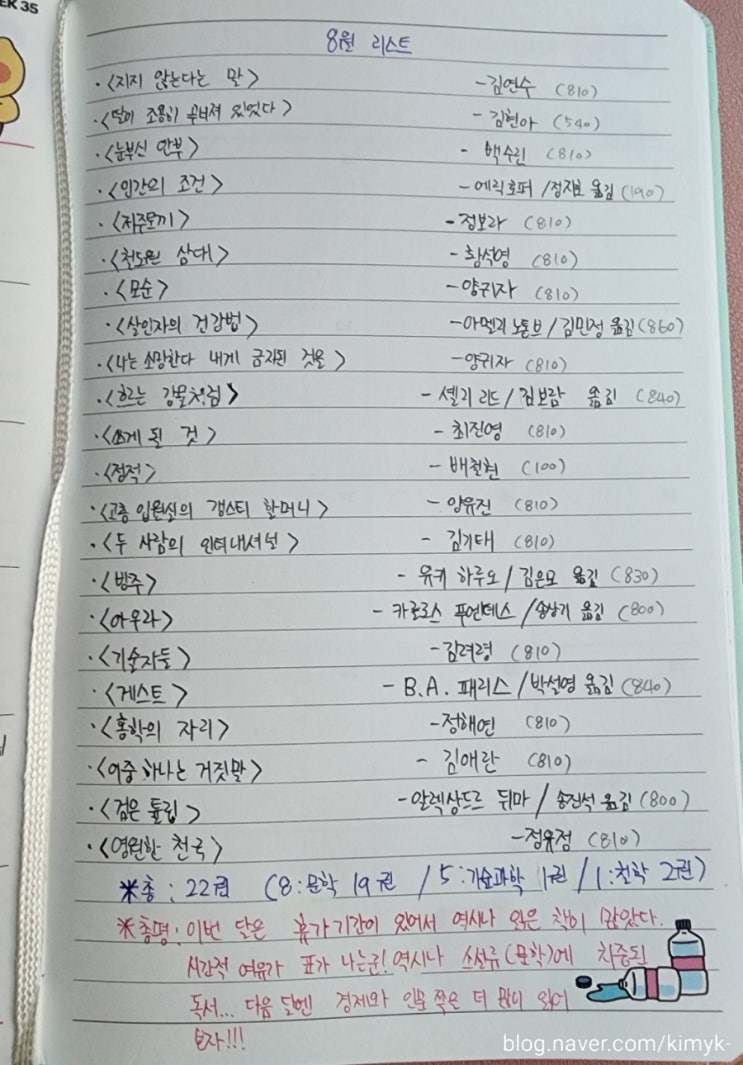 EK 35
8월 리스트
·<지지 않는다는 말> -김연수 (810)
·<딸이 조용히 무너져 있었다> - 김현아 (540)
·<눈부신 안부> - 백수린 (810)
·<인간의 조건> -에릭호퍼 /정지호 옮김 (190)
·<저주토끼> -정보라 (810)
·<철도원 삼대> -황석영 (810)
·<모순> -양귀자 (810)
·<살인자의 건강법> -아멜리 노톰브 / 김민정 옮김 (860)
·<나는 소망한다 내게 금지된 것을> -양귀자 (810)
·<흐르는 강물처럼> - 셸리 리드 / 김보람 옮김 (840)
·<쓰게 될 것> - 최진영 (810)
·<정적> - 배철현 (100)
·<고층 입원실의 갱스터 할머니> - 양유진 (810)
·<두 사람의 인터내셔널> - 김기태 (810)
·<방주> - 유키 하루오 / 김은모 옮김 (830)
·<아우라> - 카를로스 푸엔테스 /송상기 옮김 (800)
·<기술자들> -김려령 (810)
·<게스트> - B.A. 패리스 /박설영 옮김 (840)
·<홍학의 자리> -정해연 (810)
·<이중 하나는 거짓말> - 김애란 (810)
·<검은 튤립> -알렉상드르 뒤마 / 송진석 옮김 (800)
·<영원한 천국> -정유정 (810)
※총 : 22권 (8:문학 19권 / 5:기술과학 1권 / 1:철학 2권)
※총평: 이번 달은 휴가기간이 있어서 역시나 읽은 책이 많았다.
시간적 여유가 표가 나는군! 역시나 소설류(문학)에 치중된
독서... 다음 달엔 경제와 인문 쪽은 더 많이 읽어
보자!!!
blog.naver.com/kimyk-